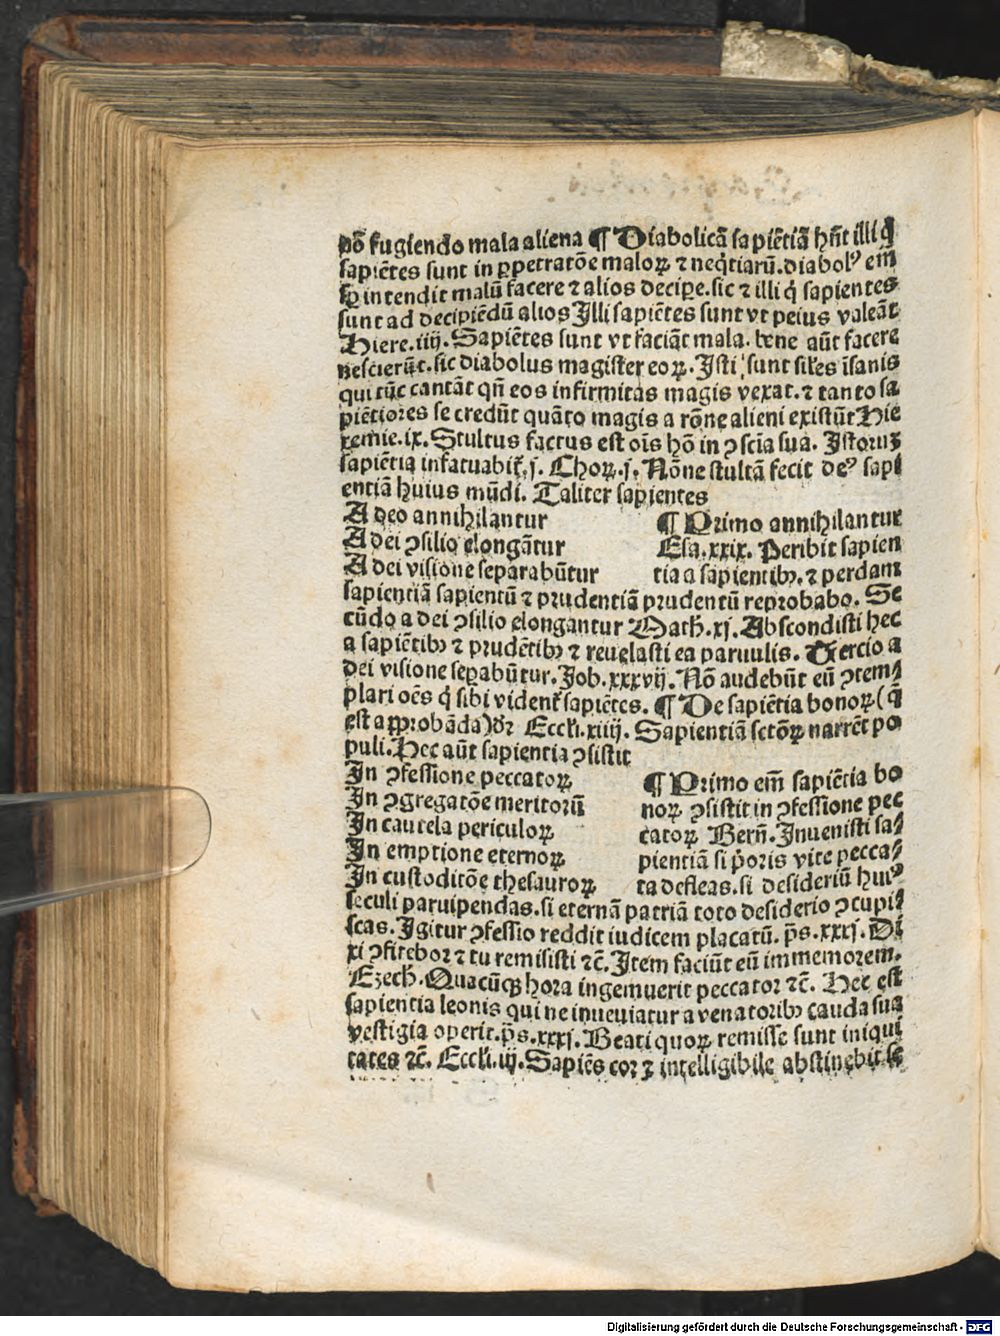 nõ fugiendo mala aliena ¶ Diabolicã sapiẽtiã hñt illi q̃
sapiẽtes sunt in ꝑpetratõe maloꝝ ⁊ neq̃tiarũ. diabolꝰ em̃
sꝑ intendit malũ facere ⁊ alios decipe. sic ⁊ illi q̃ sapientes
sunt ad decipiẽdũ alios Illi sapiẽtes sunt vt peius valeãt
Hiere. iiij. Sapiẽtes sunt vt faciãt mala. bene aũt facere
nescierũt. sic diabolus magister eoꝝ. Isti sunt siles ĩsanis
qui tũc cantãt qñ eos infirmitas magis vexat. ⁊ tanto sa
piẽtiores se credũt quãto magis a rõne alieni existũt Hie
remie. ix. Stultus factus est oĩs hõ in ꝯscĩa sua. Istorum
sapiẽtia infatuabit̃. j. Choꝝ. j. Nõne stultã fecit deꝰ sapi
entiã huius mũdi. Taliter sapientes
A deo annihilantur
A dei ꝯsilio elongãtur
A dei visione separabũtur
¶ Primo annihilantur
Esa. xxix. Peribit sapien
tia a sapientibꝫ. ⁊ perdam
sapientiã sapientũ ⁊ prudentiã prudentũ reprobabo. Se
cũdo a dei ꝯsilio elongantur Math. xj. Abscondisti hec
a sapiẽtibꝫ ⁊ prudẽtibꝫ ⁊ reuelasti ea paruulis. Tercio a
dei visione sepabũtur. Job. xxxvij. Nõ audebũt eũ ꝯtem⸗
plari oẽs q̃ sibi vident̃ sapiẽtes. ¶ De sapiẽtia bonoꝝ (q̃
est approbãda) dr̃ Eccli. xliiij. Sapientiã sctõꝝ narrẽt po
puli. Hec aũt sapientia ꝯsistit
In ꝯfessione peccatoꝝ
In ꝯgregatõe meritorũ
In cautela periculoꝝ
In emptione eternoꝝ
In custoditõe thesauroꝝ
¶ Primo em̃ sapiẽtia bo
noꝝ ꝯsistit in ꝯfessione pec
catoꝝ Berñ. Inuenisti sa⸗
pientiã si p̃oris vite pecca⸗
ta defleas. si desideriũ huiꝰ
seculi paruipendas. si eternã patriã toto desiderio ꝯcupi⸗
scas. Igitur ꝯfessio reddit iudicem placatũ. p̃s. xxxj. Di
xi ꝯfitebor ⁊ tu remisisti ⁊c̃. Item faciũt eũ immemorem.
Ezech. Quacũqꝫ hora ingemuerit peccator ⁊c̃. Hec est
sapientia leonis qui ne inueuiatur a venatoribꝫ cauda sua
vestigia operit. p̃s. xxxj. Beati quoꝝ remisse sunt iniqui
tates ⁊c̃. Eccli. iij. Sapiẽs cor ⁊ intelligibile abstinebit se
Digitalisierung gefördert durch die Deutsche Forschungsgemeinschaft - DFG